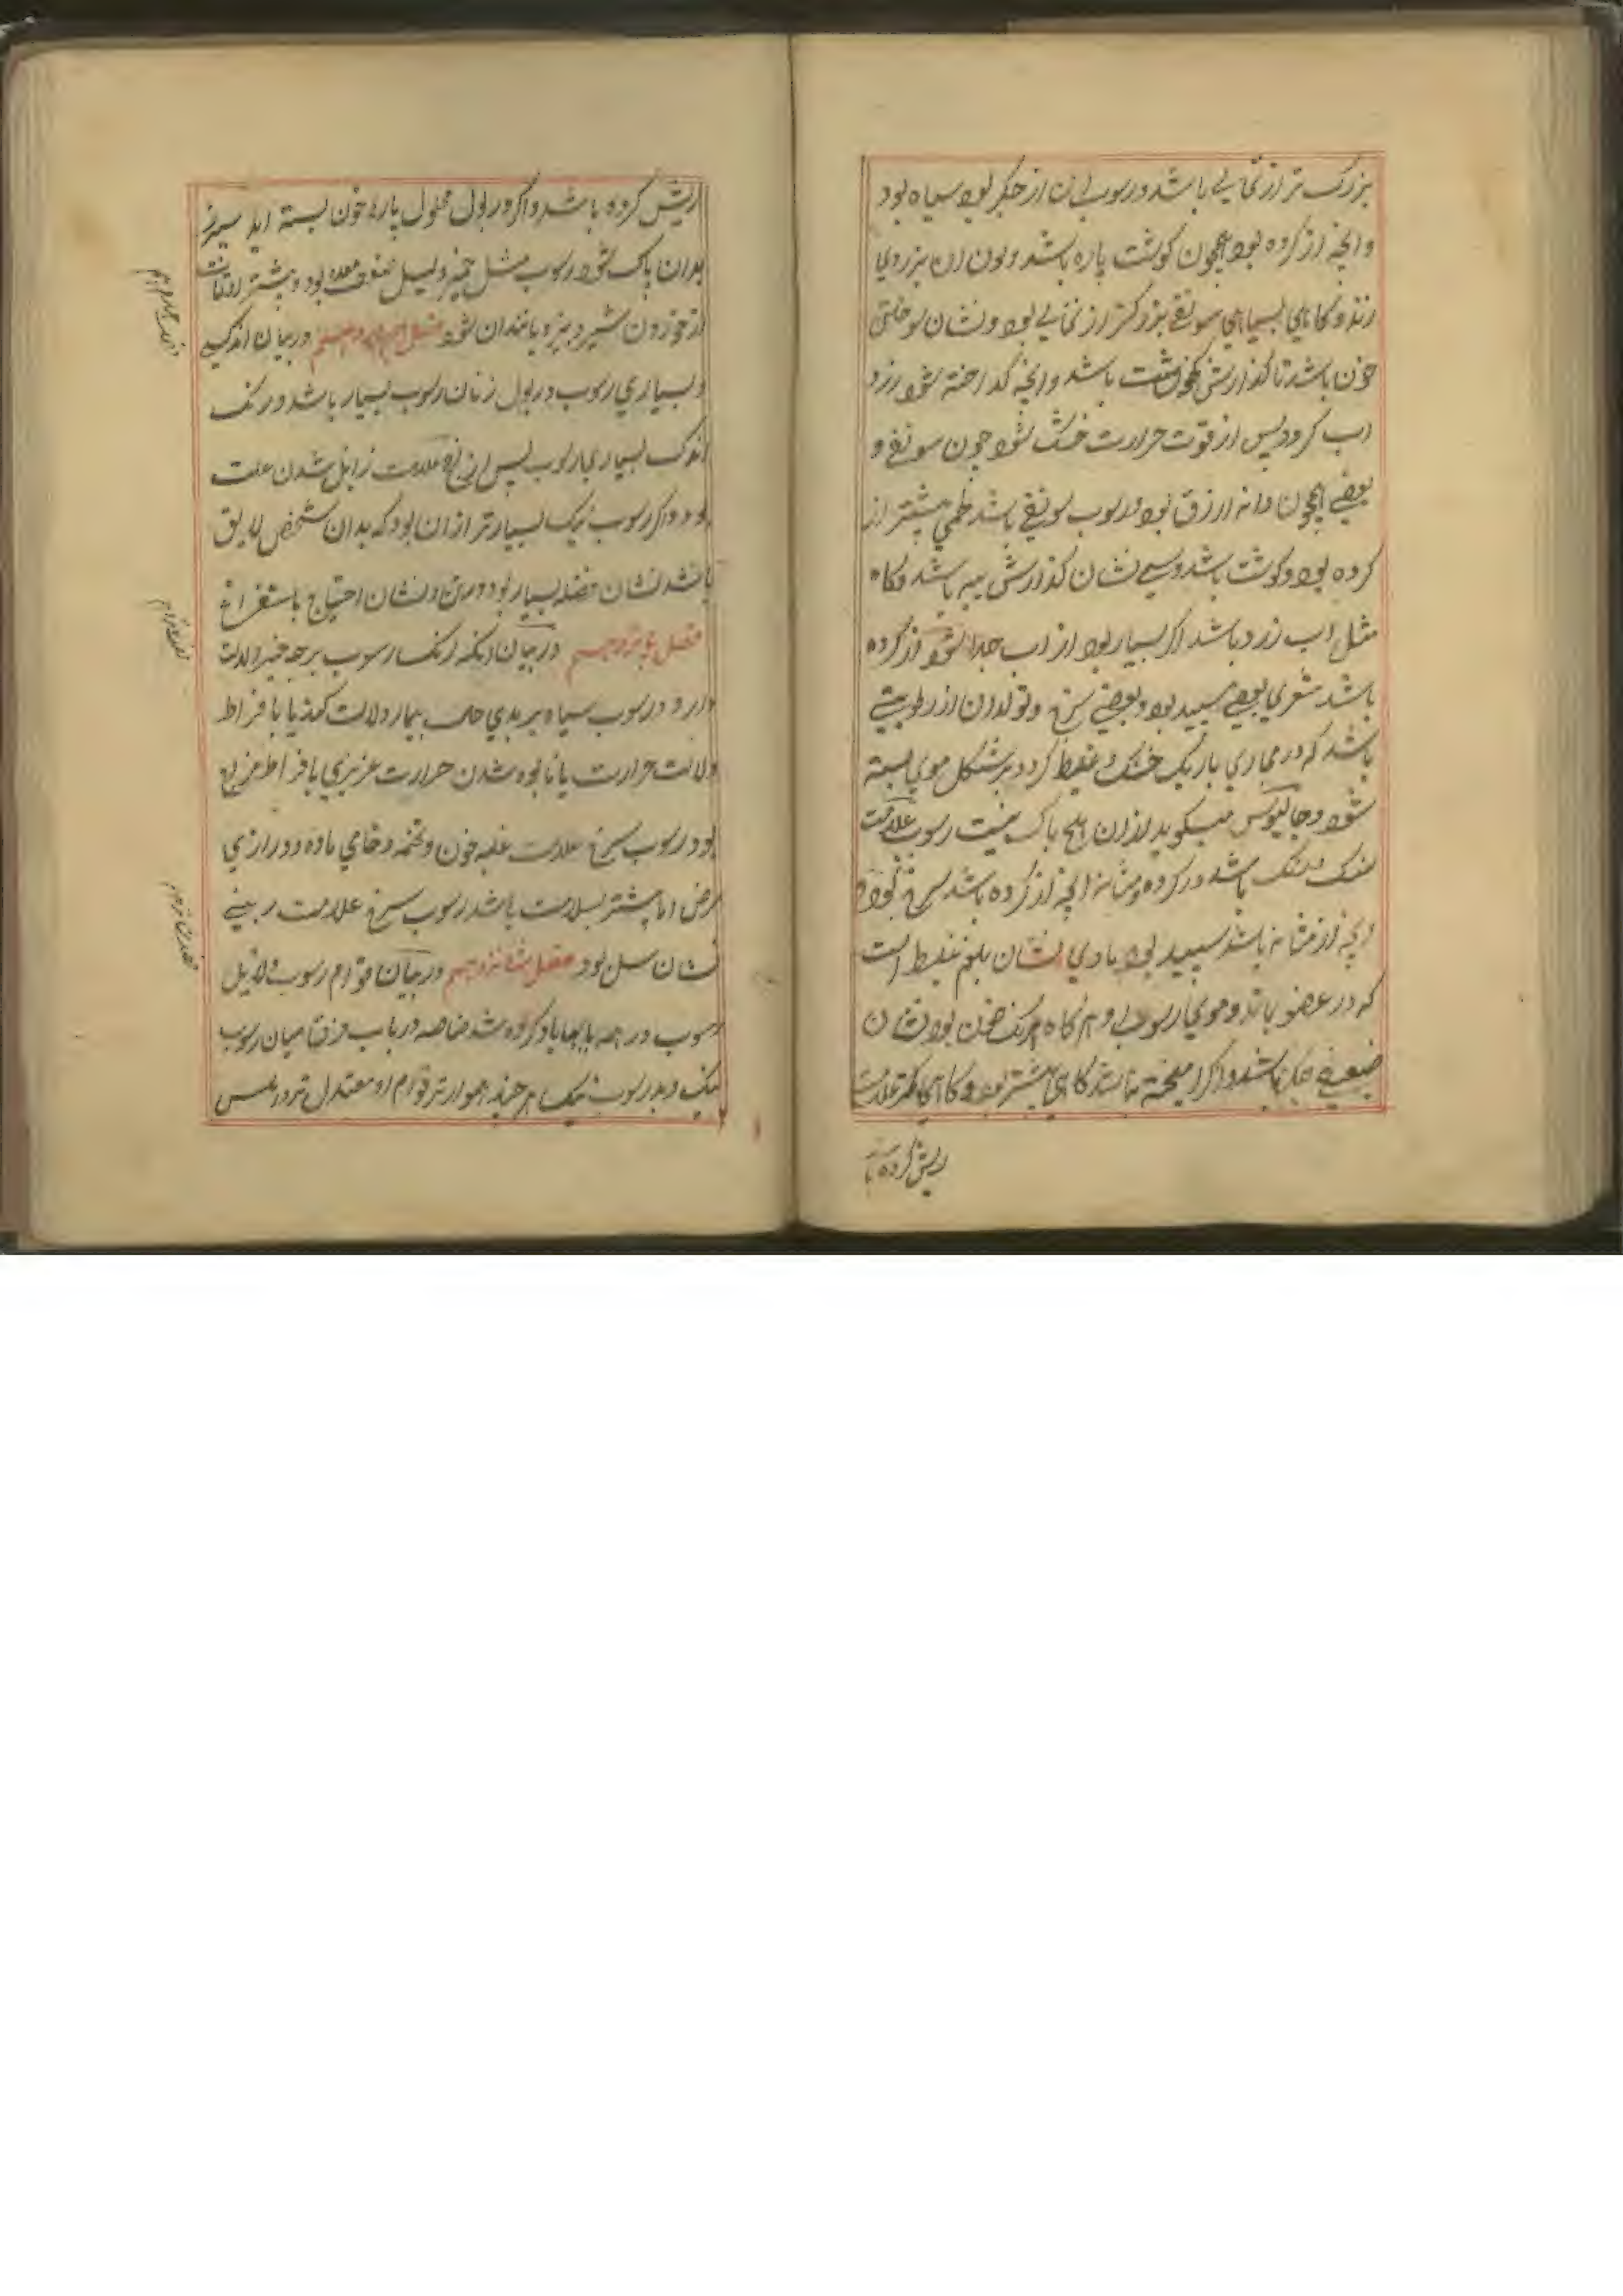 بزرک تر از نخالی باشد و رسوب ان از جکر بود سیاه بود
و انچه از کرده بود همچون کوشت پاره باشد و لون ان بزردی
زند و کاهی بسیاهی سویقی بزرکتر از نخالی بود و نشان سوختن
خون باشد تا کدازش باشد و انچه کداخته شود زرد
اب کرود پس از قوت حرارت خشک شود چون سویقی و
بعضی همچون دانه ارزق بود و رسوب سویقی باشد لحمی بیشتر از
کرده بود و کوشت باشد و دسمی نشان کدازش پیه باشد و کاه
مثل اب زرد باشد اکر بسیار بود از اب جدا شود از کرده
باشد شعری بعضی سپید بود و بعضی سرخ و تولد ان از رطوبتی
باشد که در مجاری باریک خشک و غلیظ کردد بر شکل موی بسته
شود و جالینوس میکوید از ان هیچ باک نیست رسوب علامت
سنک و ریک باشد در کرده و مثانه انچه از کرده باشد سرخ بود و
انچه از مثانه باشد سپید بود مادی نشان بلغم غلیظ است
که در عضو باشد و موی رسوبی و هر کاه همرنک خون بود نشان
ضعیفی جکر باشد و اکر امیخته نباشد کاهی بیشتر بود و کاهی کمتر علامت
ریش کرده با
ریش کرده باشد و اکر در بول محلول پاره خون بسته اید سپرز
بدان پاک شود رسوب مثل خمیر دلیل ضعف معده بود و بیشتر اوقات
از خوردن شیر و پنیر و مانند ان شود فصل چهاردهم در بیان اندکی
و بسیاری رسوب در بول زنان رسوب بسیار باشد و رنک
اندک بسیاری رسوب پس از نضج علامت زایل شدن علت
بود و اکر رسوب نیک بسیار تر از ان بود که بدان شخص لایق
باشد نشان فضله بسیار بود در تن و نشان احتیاج باستفراغ
فصل پانزدهم در بیان انکه رنک رسوب بر چه چیز دلالت
دارد و رسوب سیاه بر بدی حال بیمار دلالت کند یا بافراط
دلالت حرارت یا نابوده شدن حرارت غریزی یا فراط مزاج
بود رسوب سرخ علامت غلبه خون و تخمه و خامی ماده و درازی
مرض اما بیشتر بسلامت باشد رسوب سرخ علامت
نشان سل بود فصل شانزدهم در بیان قوام رسوب دلایل
رسوب در همه بابها یاد کرده شد خاصه در باب فرق میان رسوب
نیک و بد رسوب نیک هر چند هموارتر قوام او معتدل تر و املس